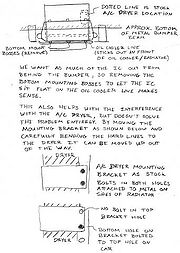 DOTED LINE IS STOCK
A/C DRYER LOCATION
BOTTOM OF METAL BUMPER BEAM
BOTTOM MOUNT
BOSSES (REMOVE)
OIL COOLER LINE
(STICKS OUT IN FRONT
OF OIL COOLER/RADIATOR)
WE WANT AS MUCH OF THE IC OUT FROM
BEHIND THE BUMPER, SO REMOVING THE
BOTTOM MOUNTING BOSSES TO LET THE IC
SIT FLAT ON THE OIL COOLER LINE MAKES
SENSE.
THIS ALSO HELPS WITH THE INTERFERENCE
WITH THE A/C DRYER, BUT DOESN'T SOLVE
THE PROBLEM ENTIRELY. BY MOVING THE
MOUNTING BRACKET AS SHOWN BELOW AND
CAREFULLY BENDING THE HARD LINES TO
THE DRYER IT CAN BE MOVED UP OUT
OF THE WAY.
DRYER
A/C DRYER MOUNTING
BRACKET AS STOCK
BOLTS IN BOTH HOLES
ATTACHED TO METAL ON
SIDES OF RADIATOR
NO BOLT IN TOP
BRACKET HOLE
BOTTOM HOLE ON
BRACKET BOLTED
TO TOP HOLE ON
CAR
DRYER